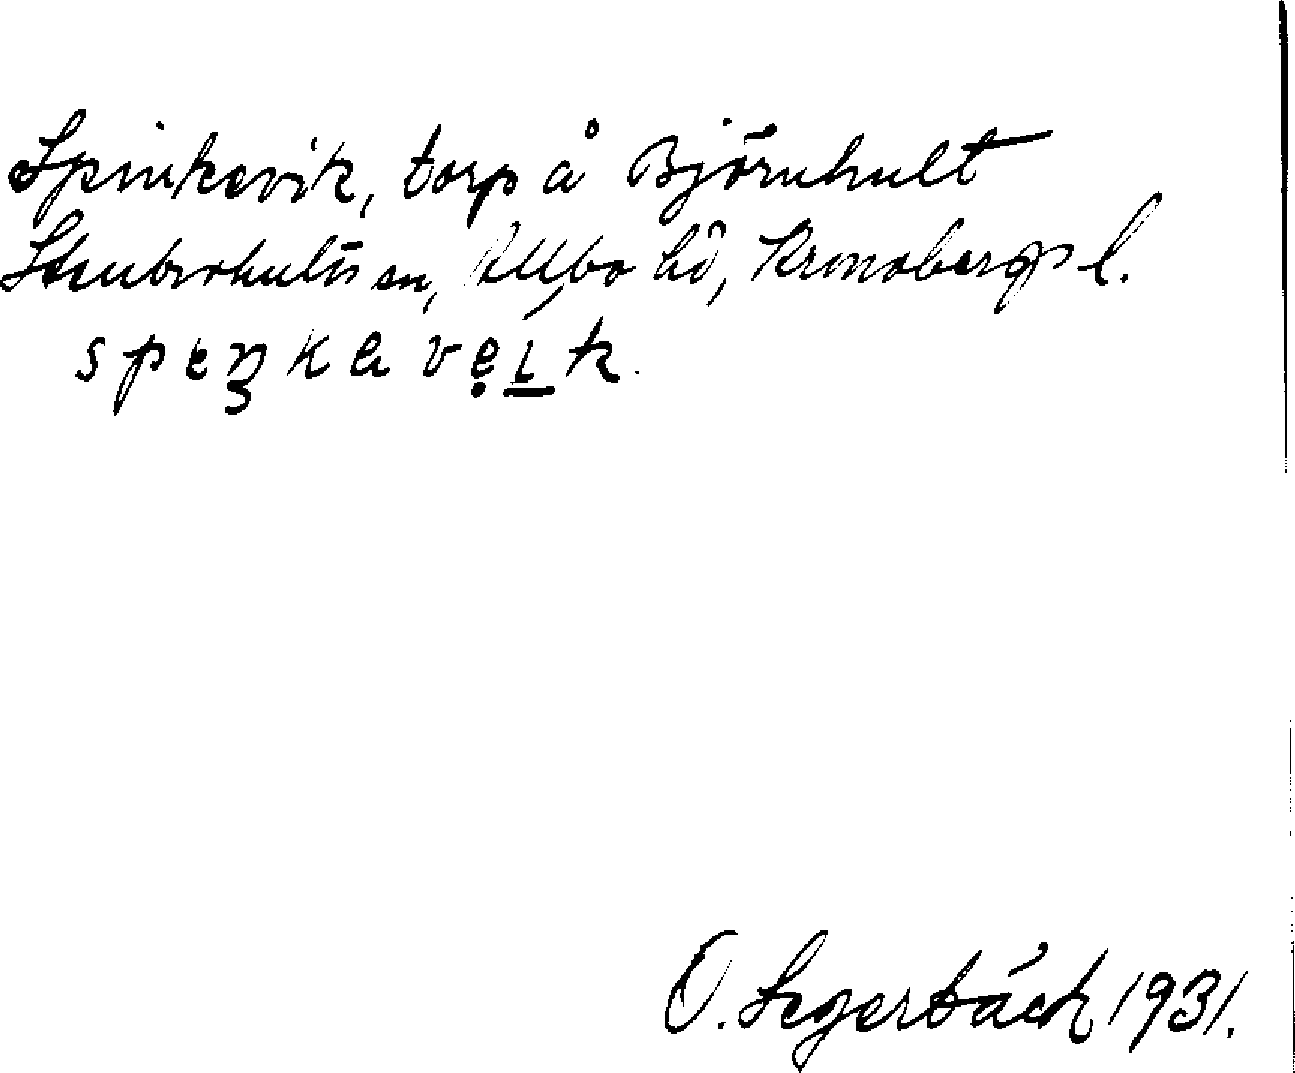 Spinkevik, torp å Björnhult
Stenbrohults sn, Allbo hd, Kronobergs l.
speŋkavẹi̲k.
O. Segerbäck 1931.